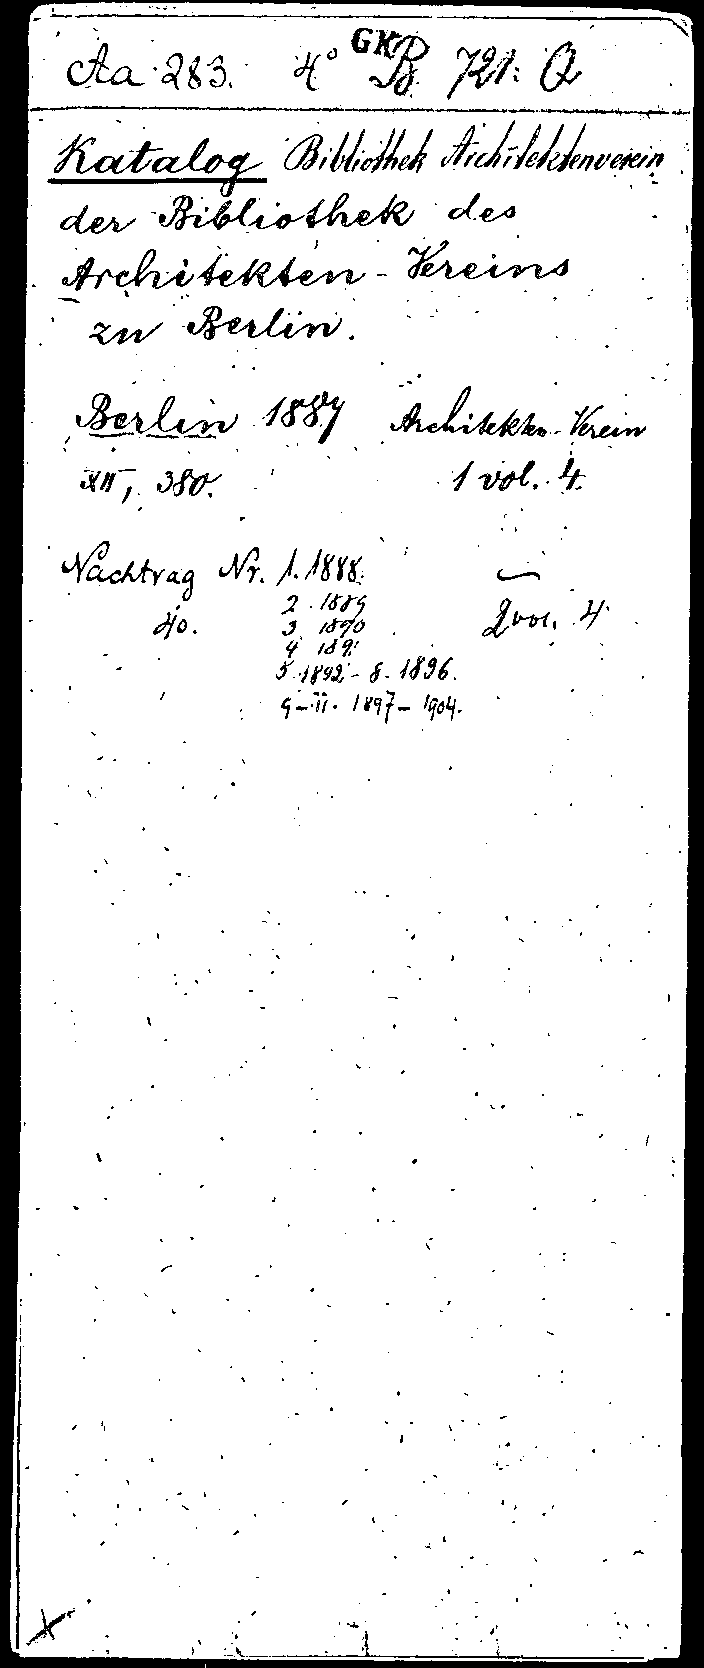 Aa 283. 4° GK B 721: Q
Katalog Bibliothek Architektenverein
der Bibliothek des
Architekten-Vereins
zu Berlin.
Berlin 1887 Architekten-Verein
XII, 380. 1 vol. 4.
Nachtrag Nr. 1. 1888.
2. 1889
40. 3 1890 2 vol. 4
4 1891
5. 1892 - 8. 1896.
9-11. 1897-1904.